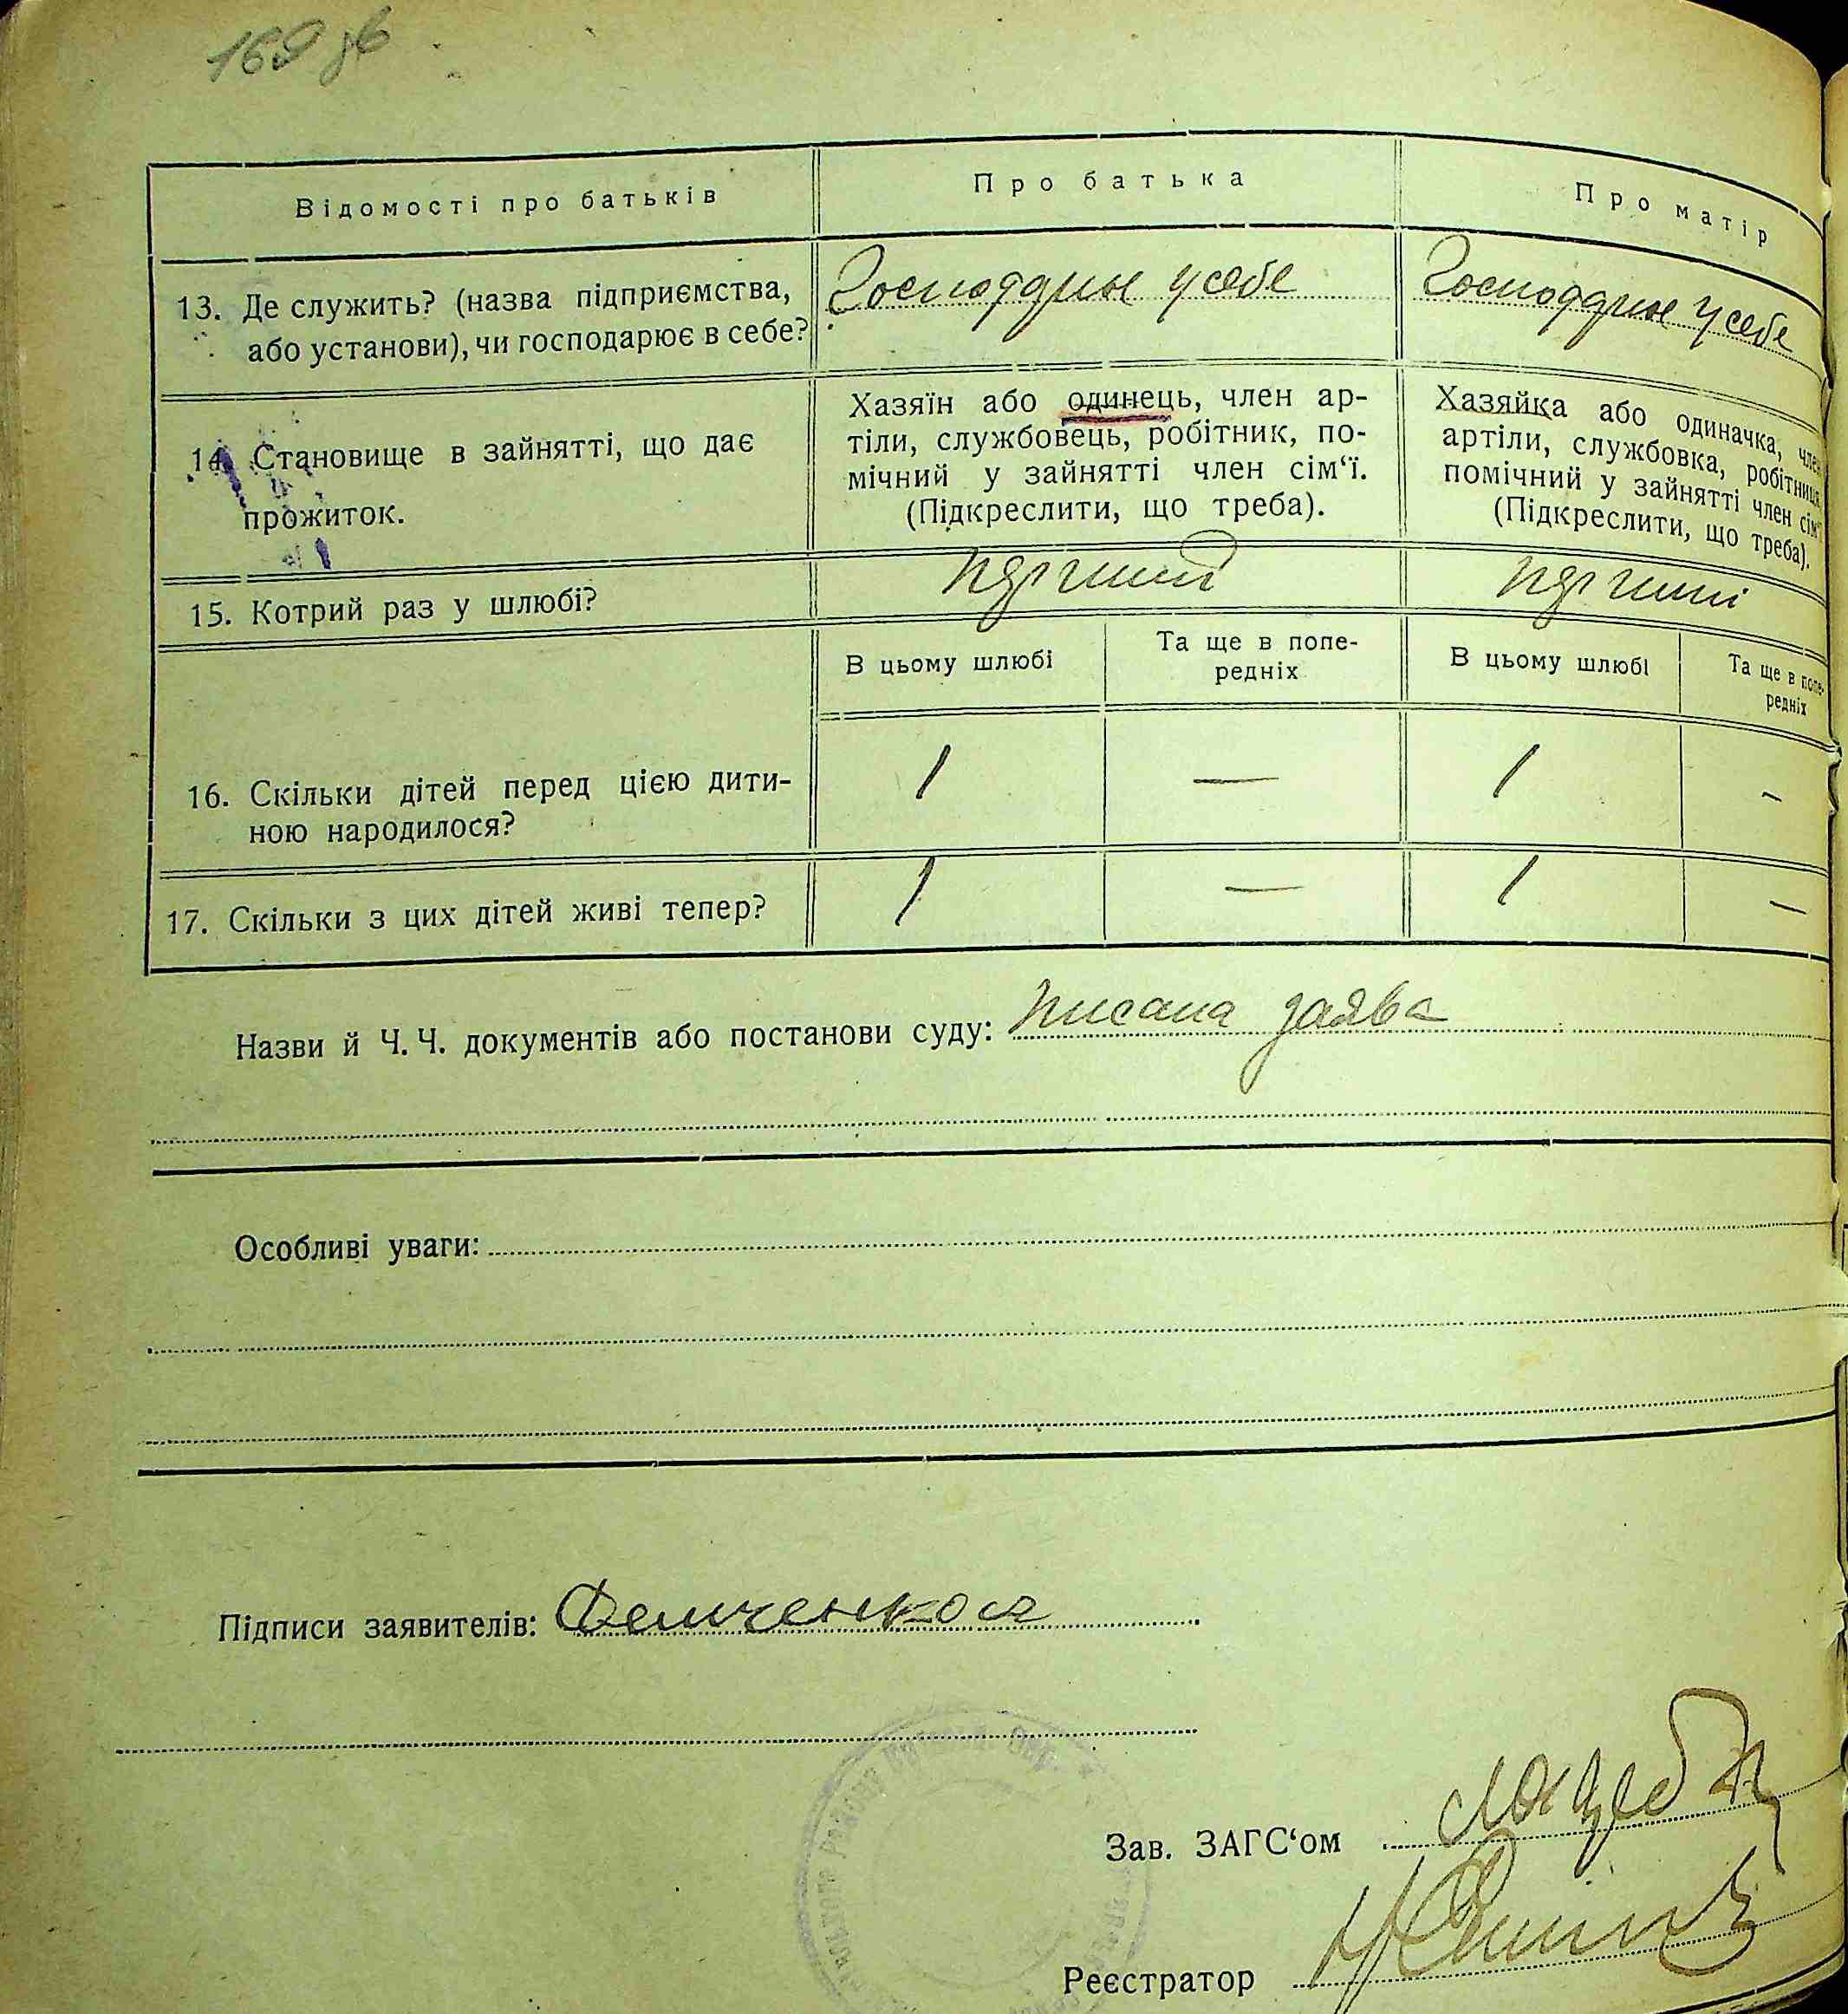 169 зв
Відомості про батьків
Про батька
Про матір
13. Де служить? (назва підприємства,
або установи), чи господарює в себе?
у себе
у себе
14. Становище в зайнятті, що дає
прожиток.
Хазяїн або одинець, член ар-
тіли, службовець, робітник, по-
мічний у зайнятті член сім‘ї.
(Підкреслити, що треба).
Хазяйка або одиначка, член
артіли, службовка, робітниця,
помічний у зайнятті член сім‘ї
(Підкреслити, що треба).
15. Котрий раз у шлюбі?
перший
перший
В цьому шлюбі
Та ще в попе-
редніх
В цьому шлюбі
Та ще в попе-
редніх
16. Скільки дітей перед цією дити-
ною народилося?
1 — 1 —
17. Скільки з цих дітей живі тепер?
1 — 1 —
Назви й Ч. Ч. документів або постанови суду: писана заява
Особливі уваги:
Підписи заявителів:
Зав. ЗАГС‘ом
Реєстратор